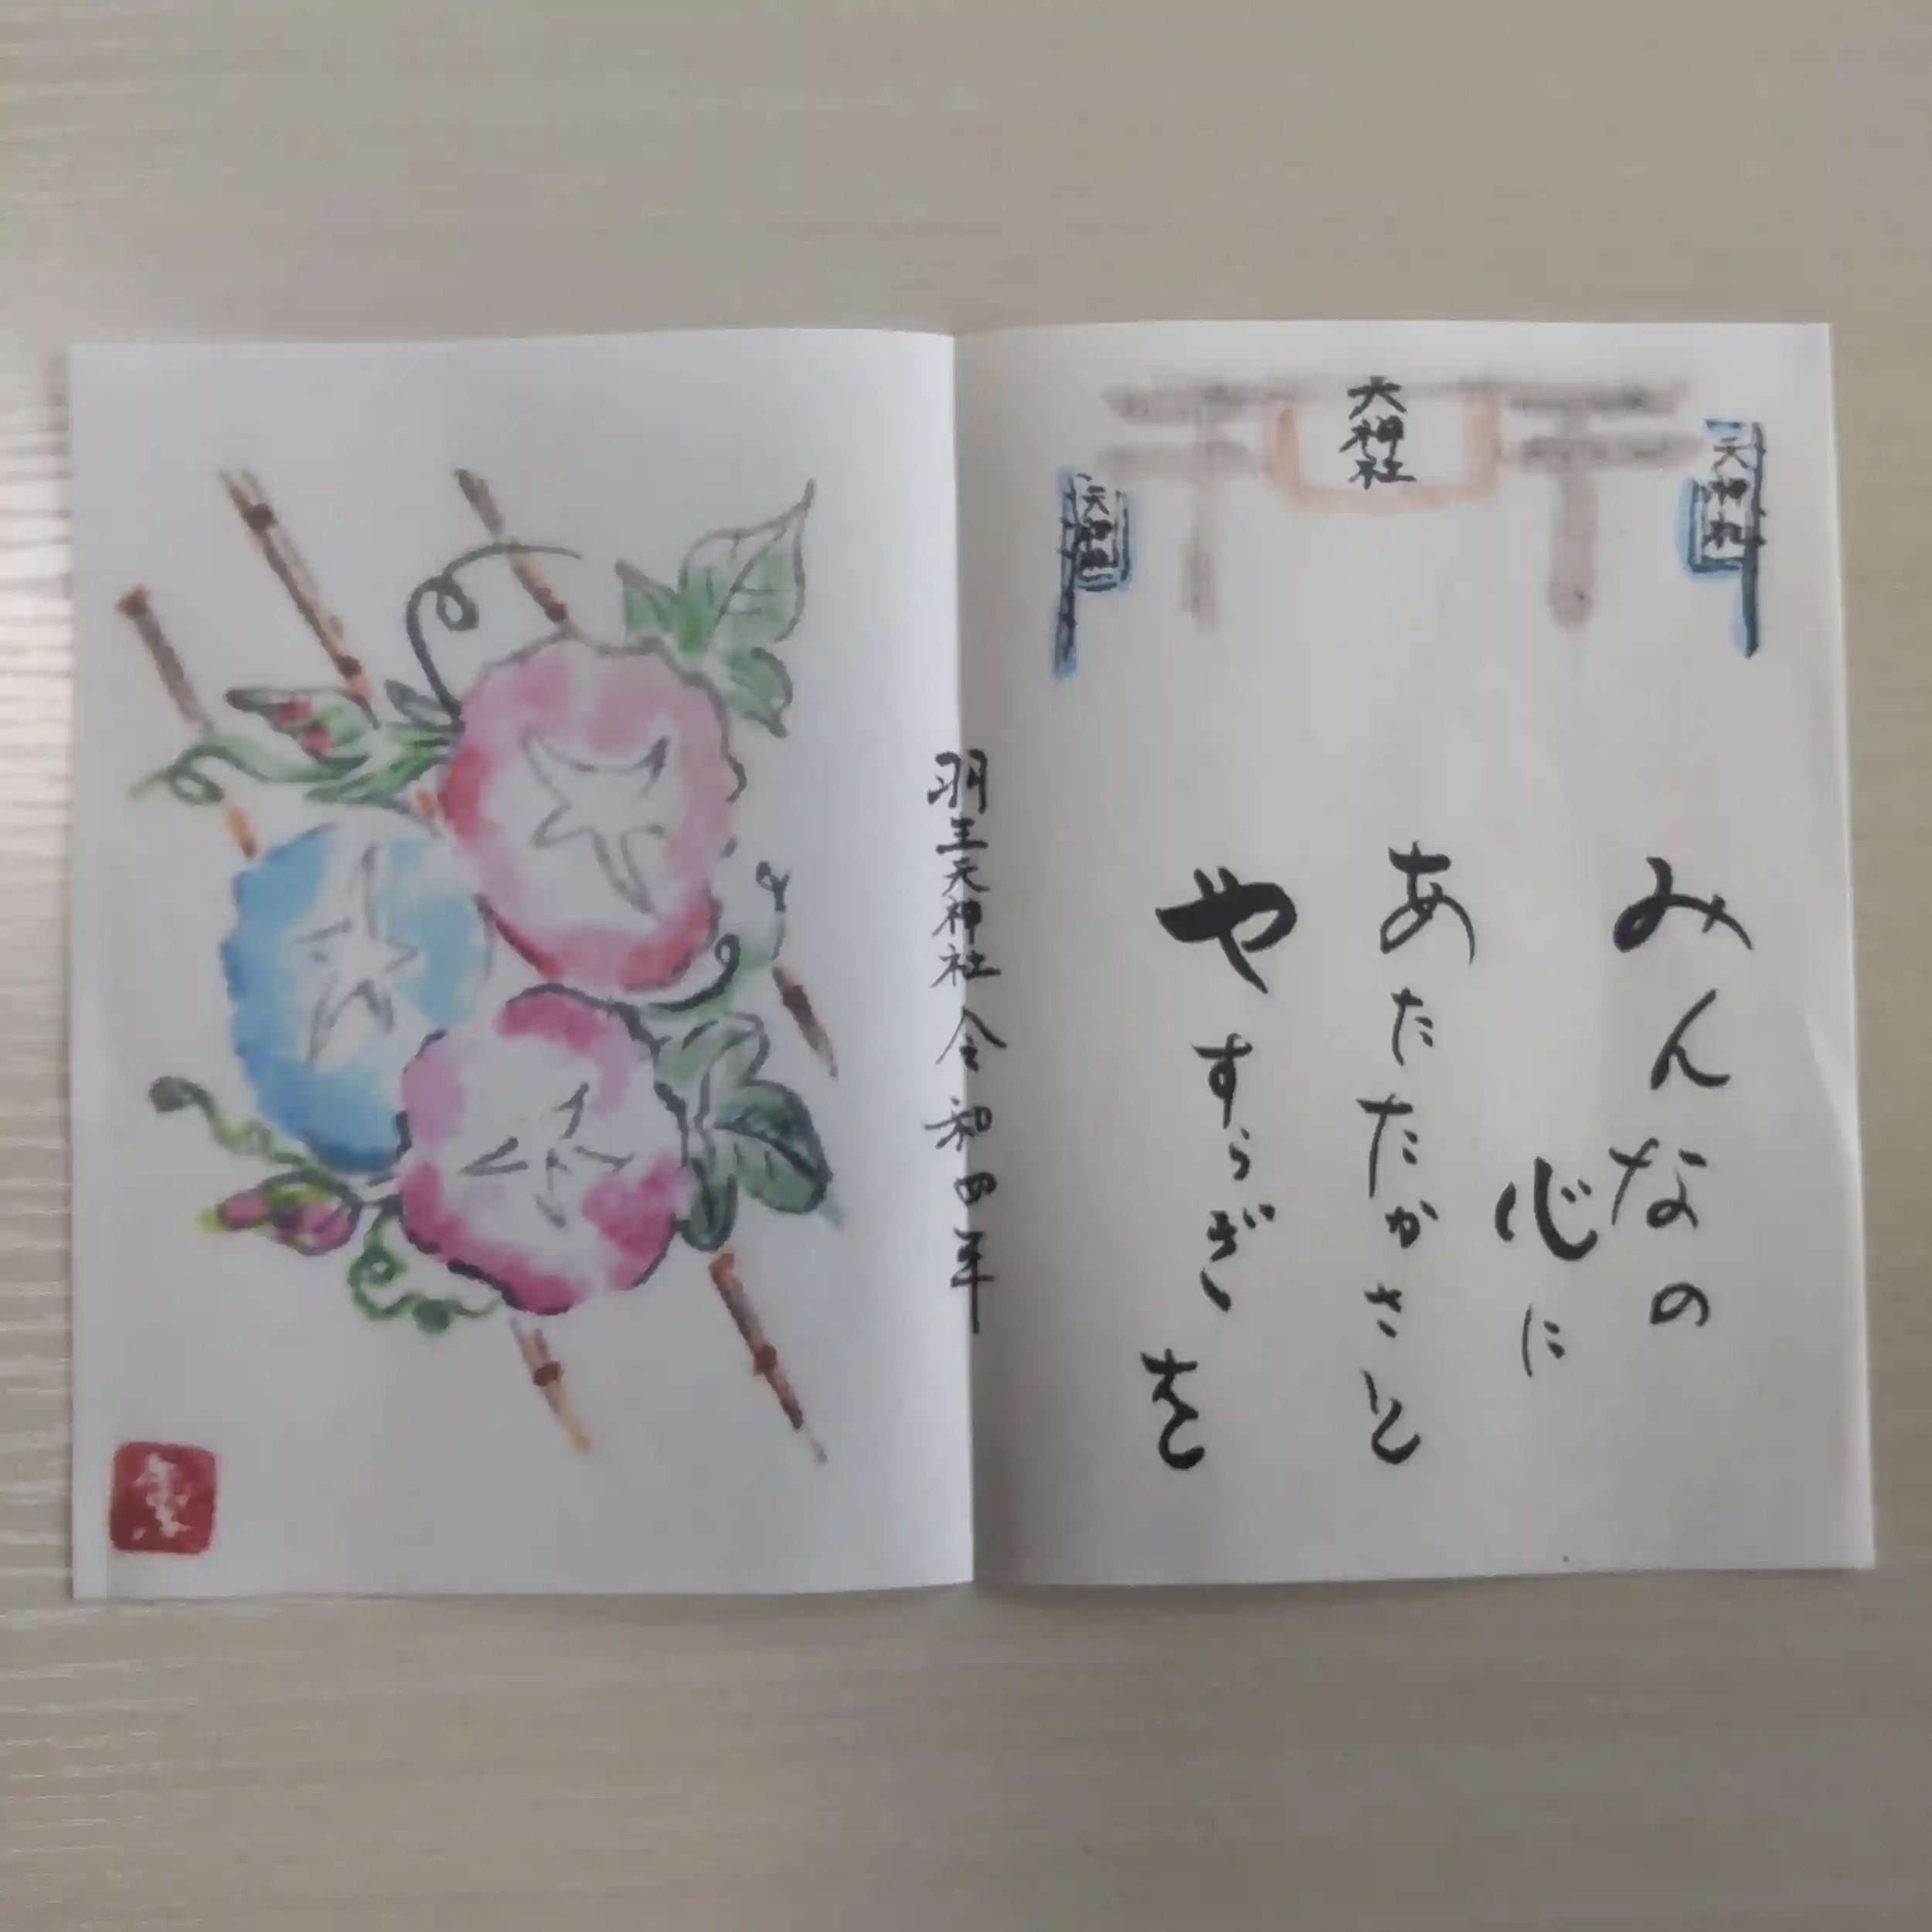 天神社
天神社
みんなの
心に
あたたかさと
やすらぎを
羽生天神社 令和四年